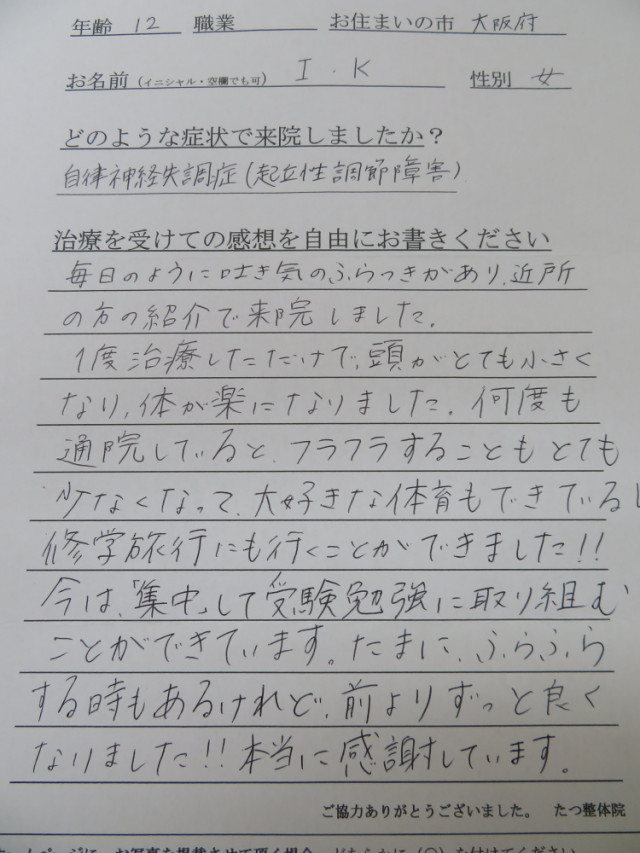 年齢 12 職業 お住まいの市 大阪府
お名前(イニシャル・空欄でも可) I.K 性別 女
どのような症状で来院しましたか?
自律神経失調症(起立性調節障害)
治療を受けての感想を自由にお書きください
毎日のように吐き気のふらつきがあり、近所
の方の紹介で来院しました。
1度治療しただけで、頭がとても小さく
なり、体が楽になりました。何度も
通院していると、フラフラすることもとても
少なくなって、大好きな体育もできているし
修学旅行にも行くことができました!!
今は、「集中」して受験勉強に取り組む
ことができています。たまに、ふらふら
する時もあるけれど、前よりずっと良く
なりました!!本当に感謝しています。
ご協力ありがとうございました。 たつ整体院
ホームページに、お写真を掲載させて頂く場合、どちらかに(○)を付けてください